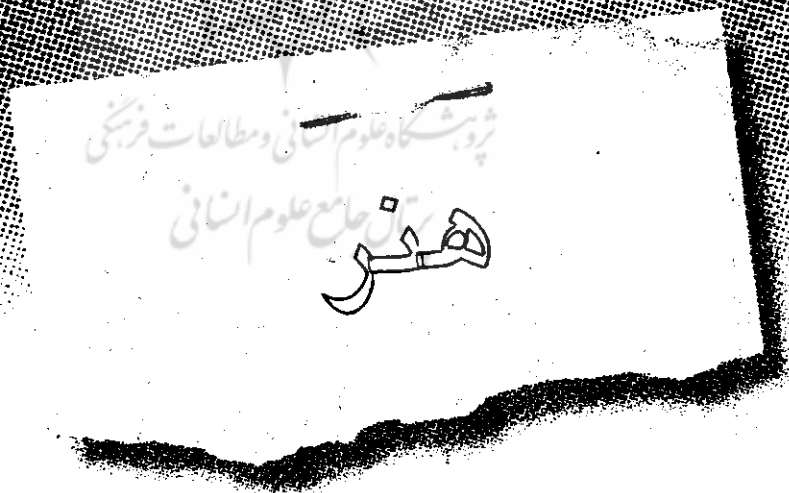 پژوهشگاه علوم انسانی و مطالعات فرهنگی
پرتال جامع علوم انسانی
هنر